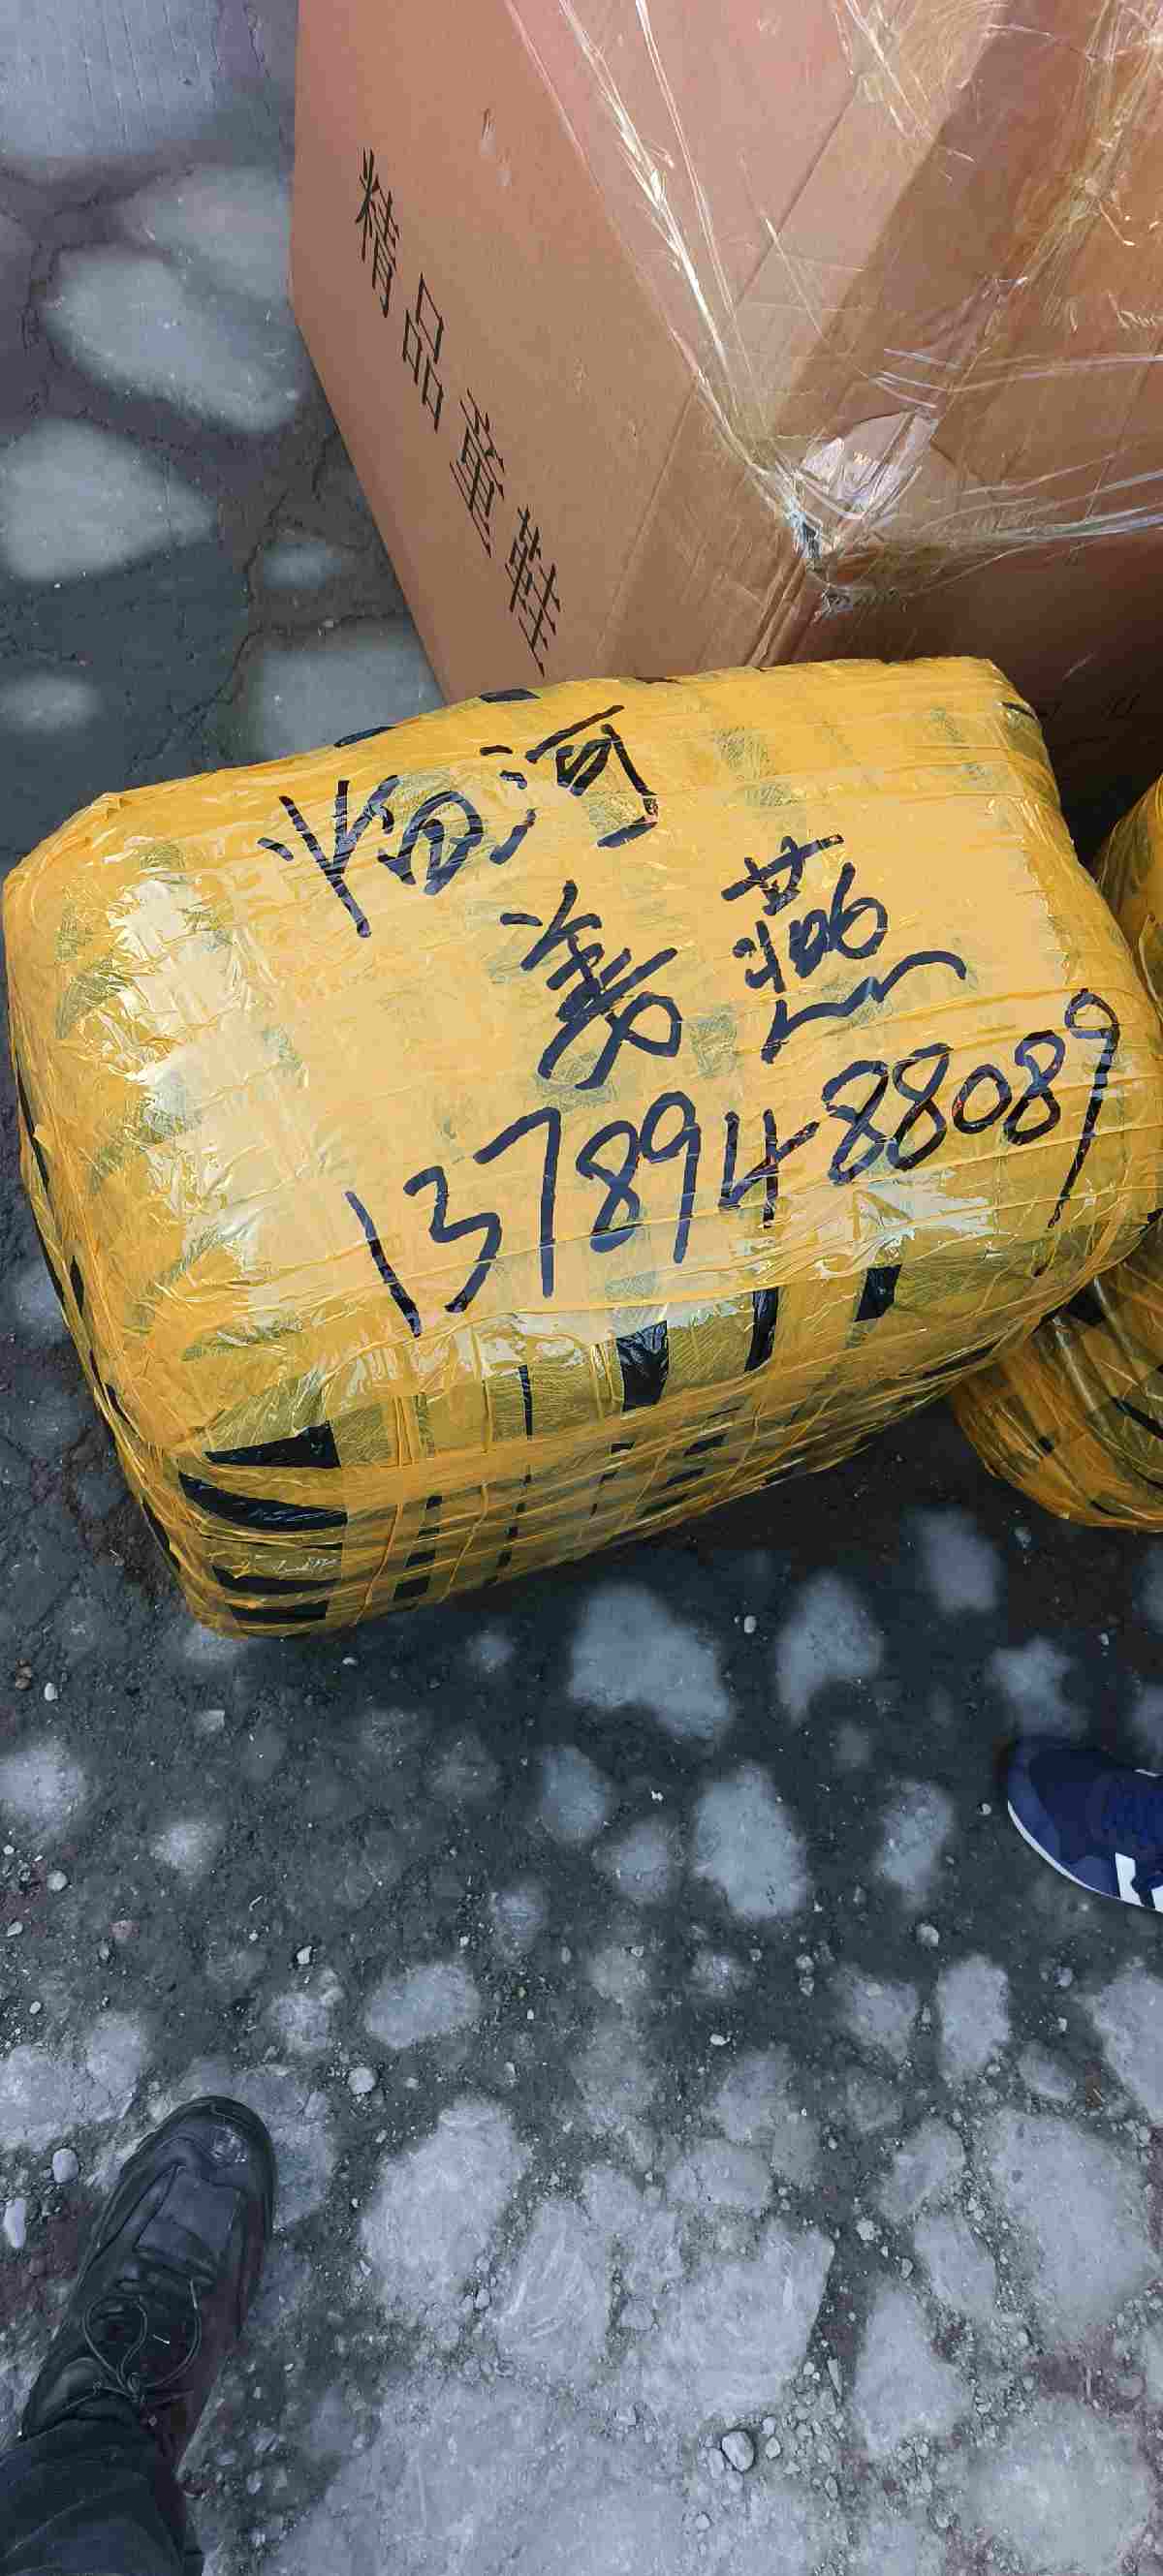 精品童鞋
临河
姜燕
13789488089